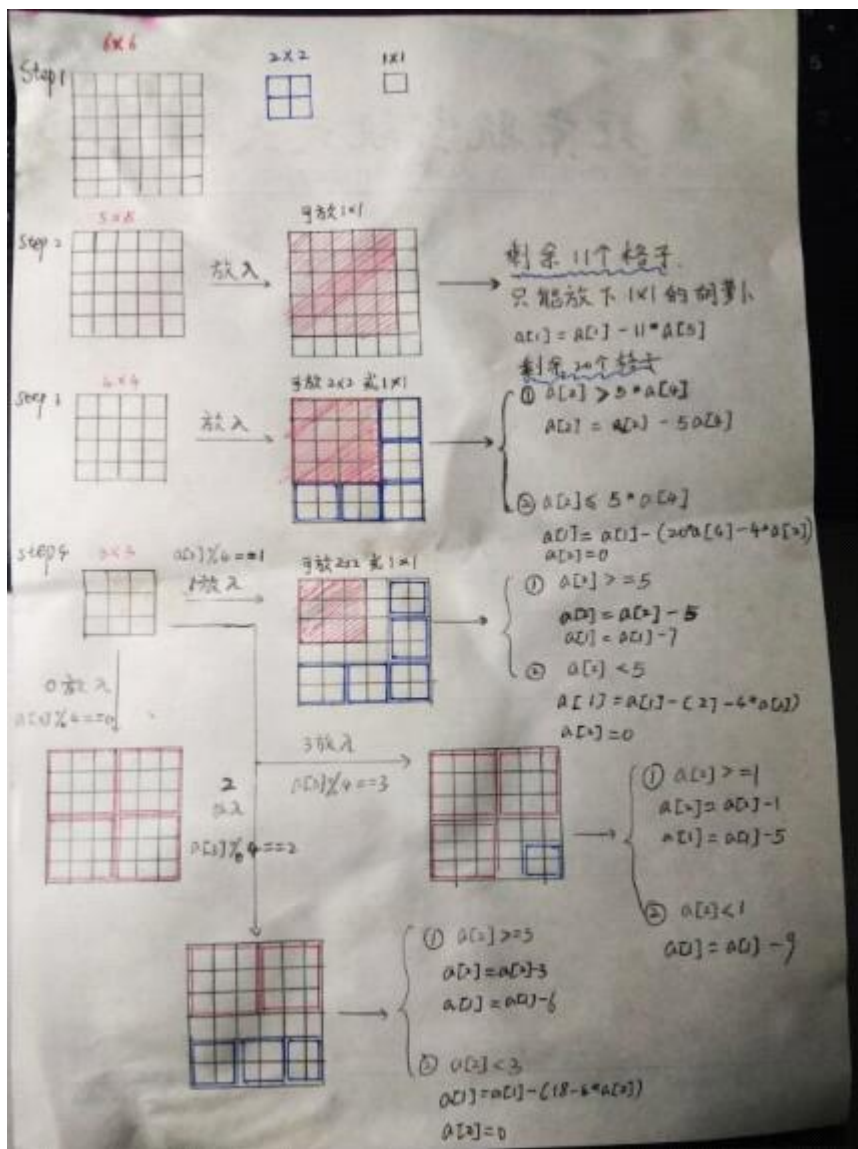 6×6
Step 1
2×2
1×1
5×5
Step 2
放入
可放1×1
剩余11个格子
只能放下1×1的胡萝卜
a[1]=a[1]-11*a[5]
剩余20个格子
4×4
Step 3
放入
可放2×2或1×1
① a[2]>5*a[4]
a[2]=a[2]-5a[4]
② a[2]≤5*a[4]
a[1]=a[1]-(20*a[4]-4*a[2])
a[2]=0
Step4
3×3
a[3]%4==1
1放入
可放2×2或1×1
① a[2]>=5
a[2]=a[2]-5
a[1]=a[1]-7
② a[2]<5
a[1]=a[1]-(27-4*a[2])
a[2]=0
0放入
a[3]%4==0
3放入
a[3]%4==3
2
放入
a[3]%4==2
① a[2]>=1
a[2]=a[2]-1
a[1]=a[1]-5
② a[2]<1
a[1]=a[1]-9
① a[2]>=3
a[2]=a[2]-3
a[1]=a[1]-6
② a[2]<3
a[1]=a[1]-(18-4*a[2])
a[2]=0